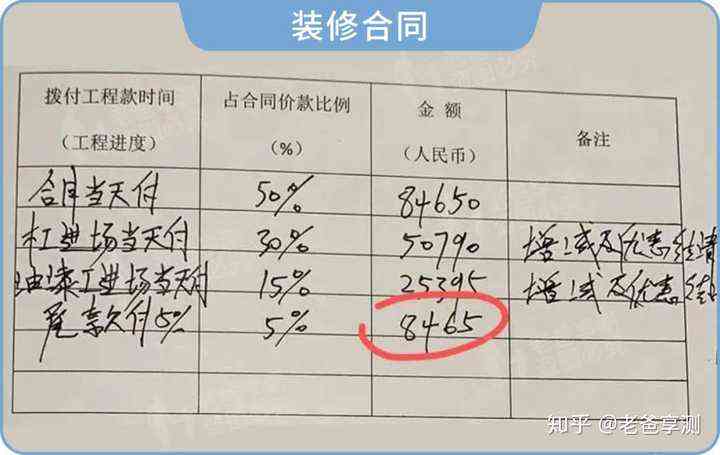 装修合同
拨付工程款时间 占合同价款比例 金额 备注
(工程进度) (%) (人民币)
合同当天付 50% 84650
木工进场当天付 30% 50790 增减及优惠结清
油漆工进场当天付 15% 25395 增减及优惠结
尾款付5% 5% 8465
知乎 @老爸享测